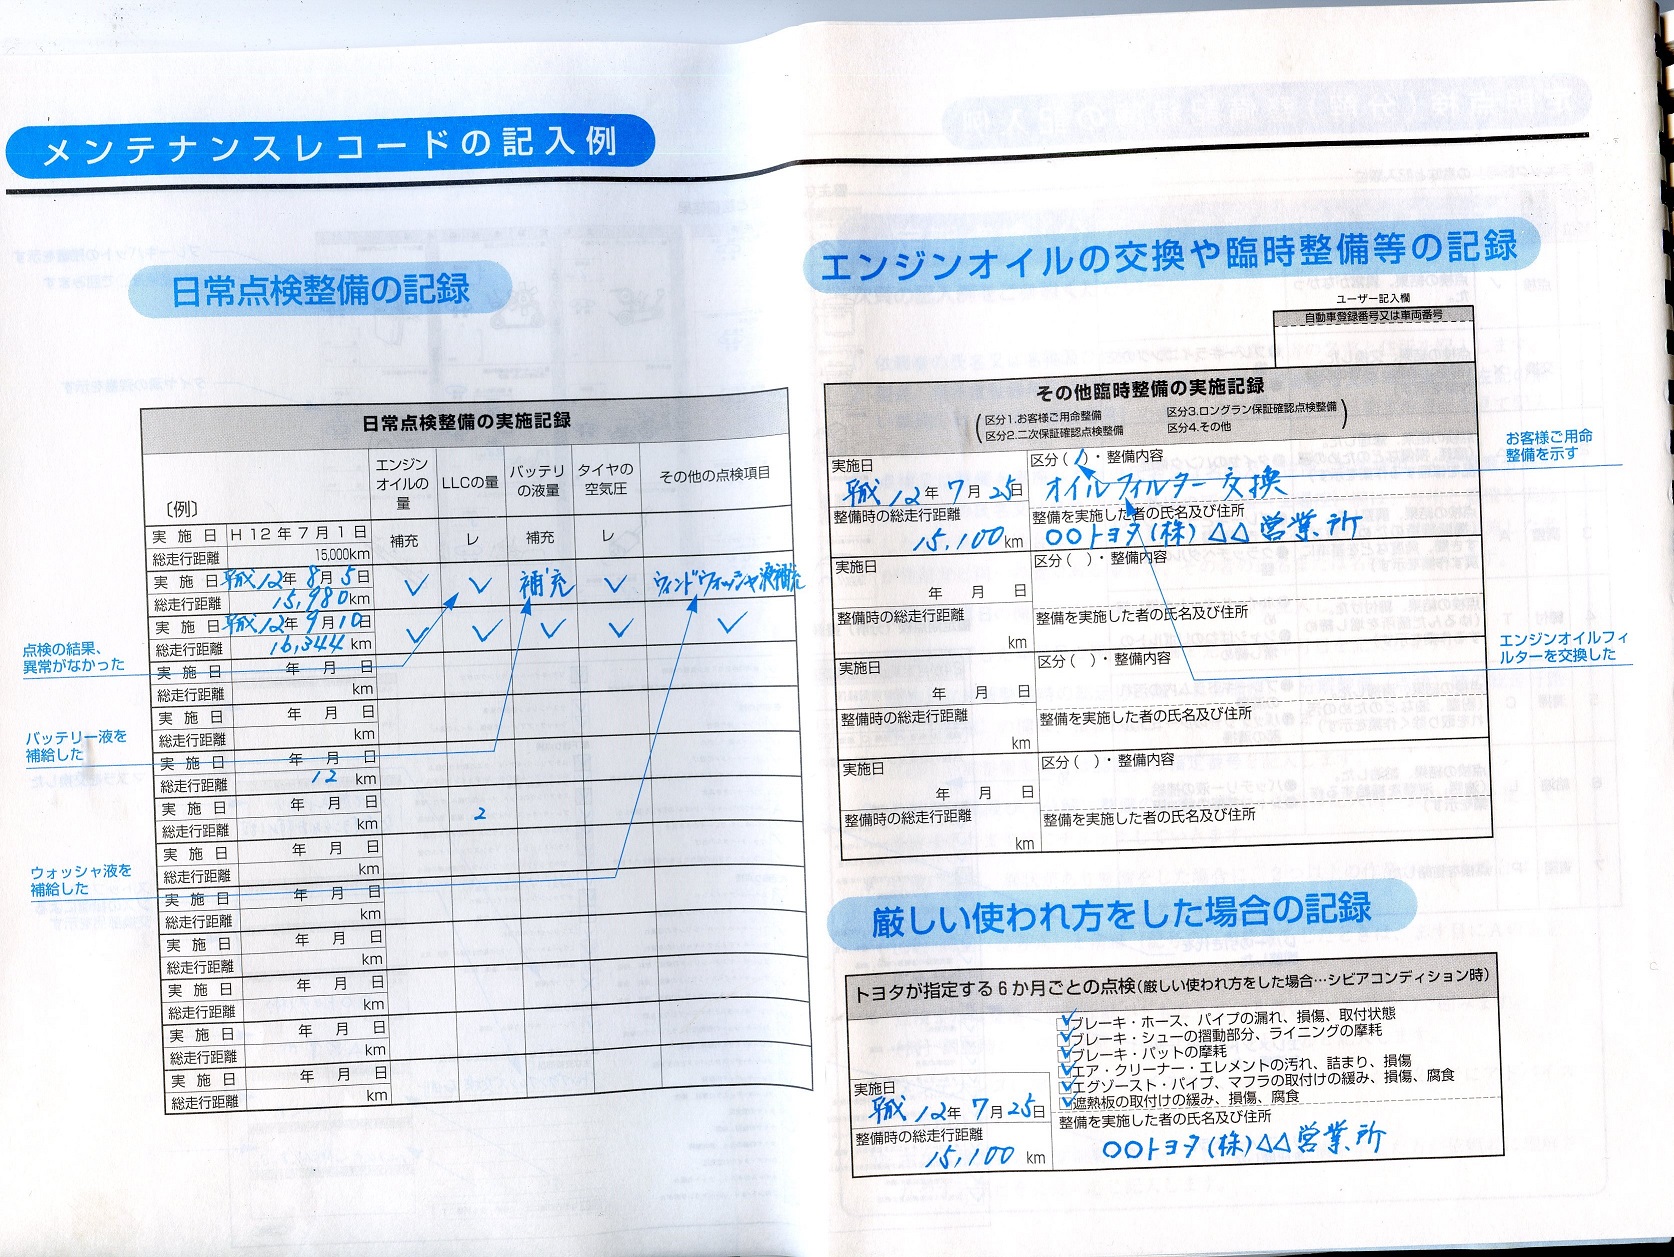 メンテナンスレコードの記入例
日常点検整備の記録
日常点検整備の実施記録
〔例〕
エンジンオイルの量
LLCの量
バッテリの液量
タイヤの空気圧
その他の点検項目
実施日 H12年7月1日 補充 レ 補充 レ
総走行距離 15,000km
実施日 平成12年8月5日 ✓ ✓ 補充 ✓ ウィンドウォッシャ液補充
総走行距離 15,980km
実施日 平成12年9月10日 ✓ ✓ ✓ ✓ ✓
総走行距離 16,344km
実施日 年 月 日
総走行距離 km
実施日 年 月 日
総走行距離 km
実施日 年 月 日
総走行距離 12 km
実施日 年 月 日
総走行距離 km 2
実施日 年 月 日
総走行距離 km
実施日 年 月 日
総走行距離 km
実施日 年 月 日
総走行距離 km
実施日 年 月 日
総走行距離 km
実施日 年 月 日
総走行距離 km
実施日 年 月 日
総走行距離 km
点検の結果、
異常がなかった
バッテリー液を
補給した
ウォッシャ液を
補給した
エンジンオイルの交換や臨時整備等の記録
ユーザー記入欄
自動車登録番号又は車両番号
その他臨時整備の実施記録
区分1.お客様ご用命整備 区分3.ロングラン保証確認点検整備
区分2.二次保証確認点検整備 区分4.その他
実施日 区分(1)・整備内容
平成12年7月25日 オイルフィルター交換
整備時の総走行距離 整備を実施した者の氏名及び住所
15,100km ○○トヨタ(株)△△営業所
実施日 区分( )・整備内容
年 月 日
整備時の総走行距離 整備を実施した者の氏名及び住所
km
実施日 区分( )・整備内容
年 月 日
整備時の総走行距離 整備を実施した者の氏名及び住所
km
実施日 区分( )・整備内容
年 月 日
整備時の総走行距離 整備を実施した者の氏名及び住所
km
お客様ご用命
整備を示す
エンジンオイルフィ
ルターを交換した
厳しい使われ方をした場合の記録
トヨタが指定する6か月ごとの点検(厳しい使われ方をした場合…シビアコンディション時)
✓ブレーキ・ホース、パイプの漏れ、損傷、取付状態
✓ブレーキ・シューの摺動部分、ライニングの摩耗
✓ブレーキ・パットの摩耗
✓エア・クリーナー・エレメントの汚れ、詰まり、損傷
✓エグゾースト・パイプ、マフラの取付けの緩み、損傷、腐食
✓遮熱板の取付けの緩み、損傷、腐食
実施日
平成12年7月25日
整備時の総走行距離
15,100km
整備を実施した者の氏名及び住所
○○トヨタ(株)△△営業所